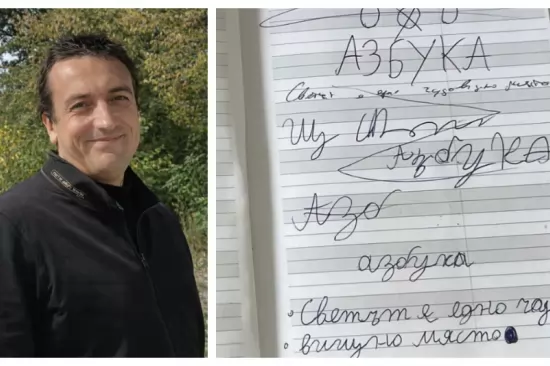 АЗБУКА
Светът е едно чудовищно място
Щ
АзбуКА
Азб
азбука
• Светът е едно чудо
• вищно място